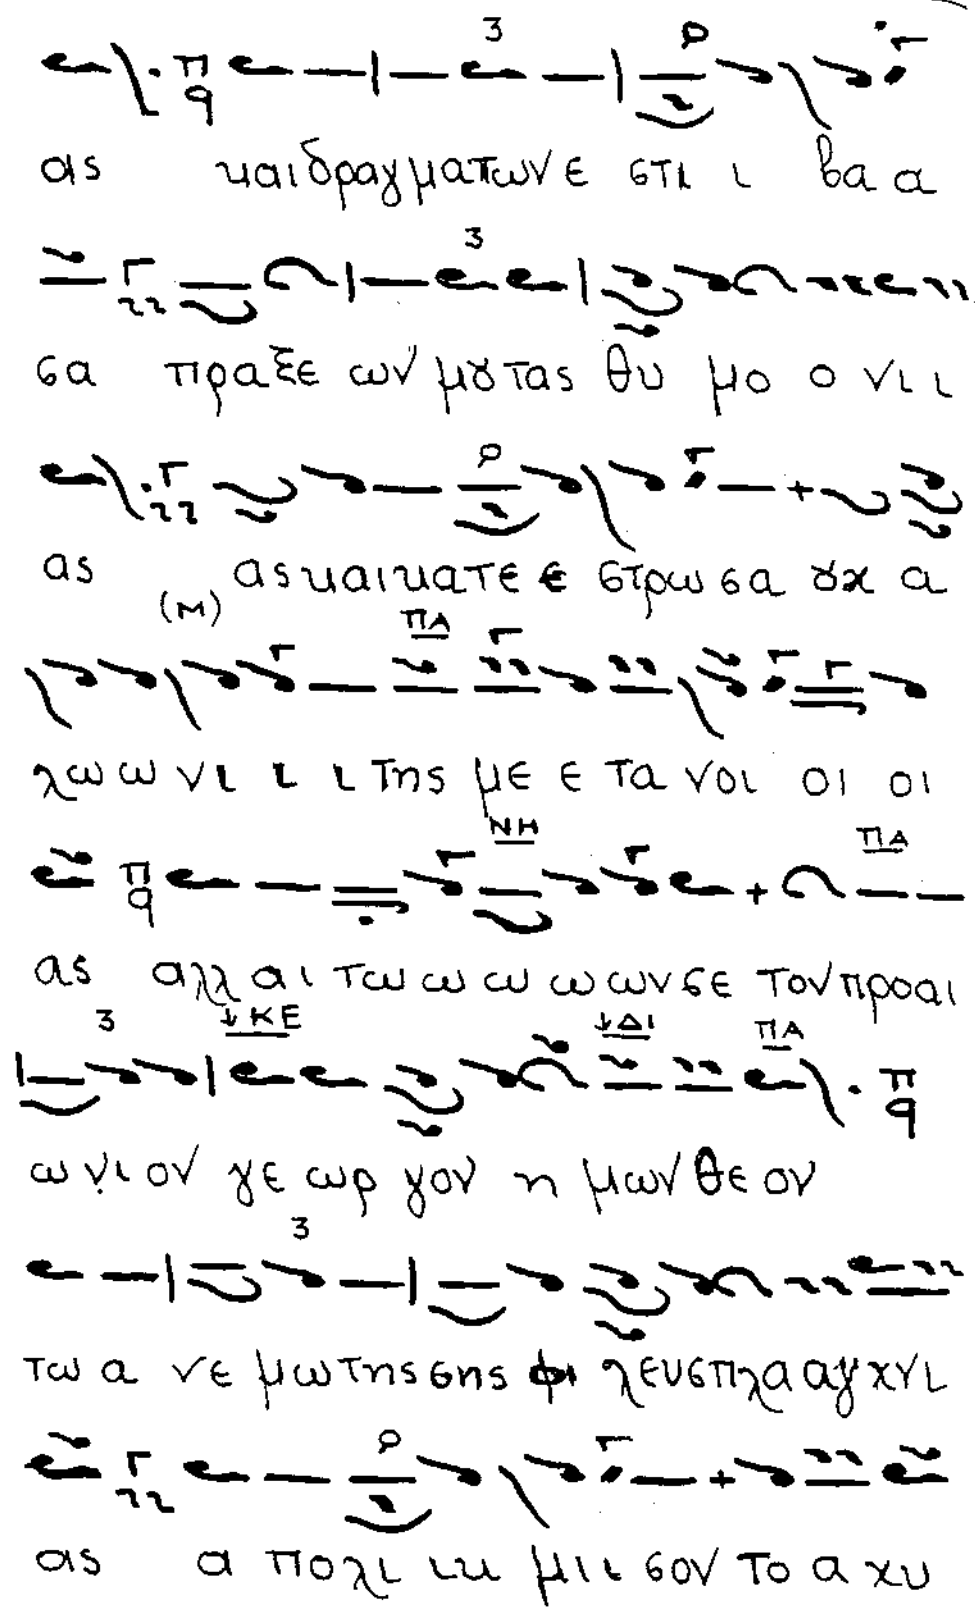 3
ας και δραγματων ε στι ι βα α
3
σα πραξε ων μȣ τας θυ μο ο νι ι
ας ας και κατε ε στρω σα ȣκ α
(Μ) ΠΑ
λω ω νι ι ι της με ε τα νοι οι οι
ΝΗ ΠΑ
ας αλλ αι τω ω ω ω ων σε τον προαι
3 ↓ΚΕ ↓ΔΙ ΠΑ
ω νι ον γε ωρ γον η μων θε ον
3
τω α νε μω της σης φι λευσπλα αγχνι
ας α πο λι ικ μι ι σον το α χυ